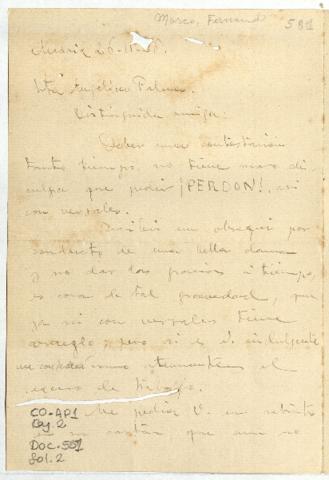 Marco, Fernand
581
Srta Angélica Palma.
Distinguida amiga:
Deber una contestación
tanto tiempo, no tiene mas dis
culpa que pedir ¡PERDON!, así
con versales.
Recibir un obsequio por
conducto de una bella dama
y no dar las gracias a tiempo,
es cosa de tal gravedad, que
ya ni con versales tiene
arreglo; pero si es V. indulgente
me concederá como atenuante el
exceso de trabajo.
Me pedía V. un retrato
que aun no
CO-AP1
Caj. 2
DOC-581
fol. 2